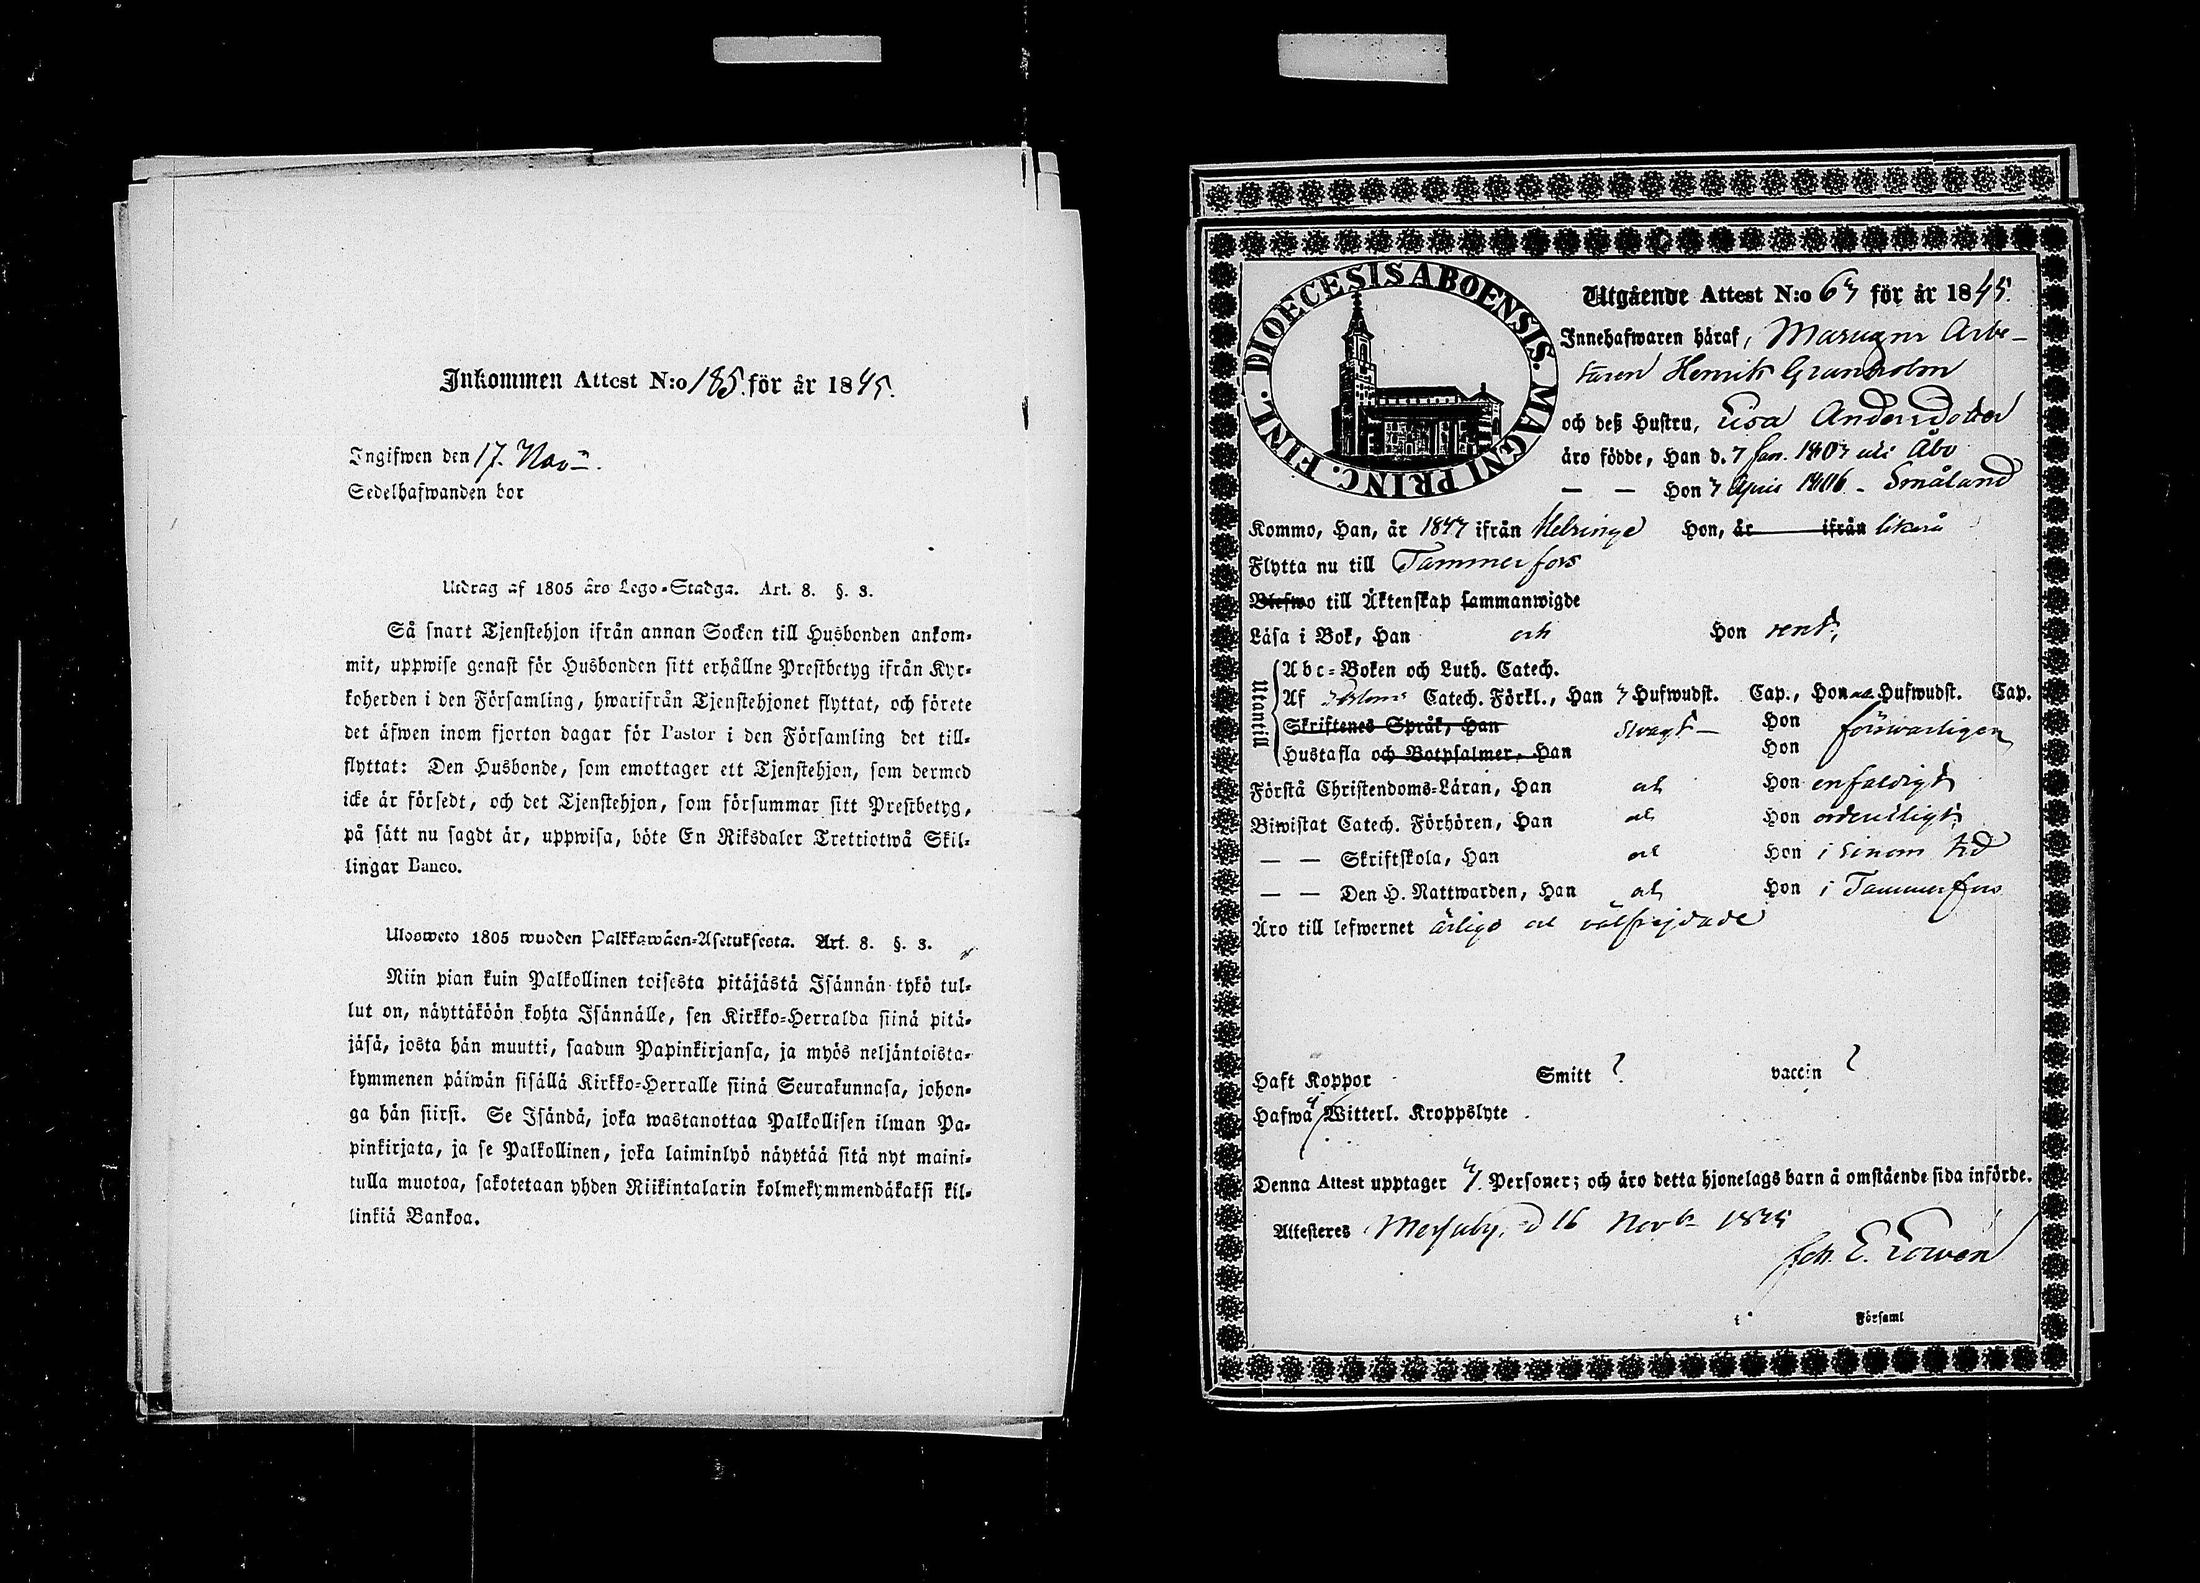 Inkommen Attest N:o 185. för år 1845.
Ingifwen den 17. Nov
Sedelhafwanden bor
Utdrag af 1805 års Lego-Stadga. Art. 8. §. 3.
Så snart Tjenstehjon ifrån annan Socken till Husbonden ankom-
mit, uppwise genast för Husbonden sitt erhållne Prestbetyg ifrån Kyr-
koherden i den Församling, hwarifrån Tjenstehjonet flyttat, och förete
det äfwen inom fjorton dagar för Pastor i den Församling det till-
flyttat: Den Husbonde, som emottager ett Tjenstehjon, som dermed
icke är försedt, och det Tjenstehjon, som försummar sitt Prestbetyg,
på sätt nu sagdt är, uppwisa, böte En Riksdaler Trettiotwå Skil-
lingar Banco.
Ulosweto 1805 wuoden Palkkawäen-Asetuksesta. Art. 8. §. 3.
Niin pian kuin Palkollinen toisesta pitäjästä Isännän tykö tul-
lut on, näyttäköön kohta Isännälle, sen Kirkko-Herralda siinä pitä-
jäsä, josta hän muutti, saadun Papinkirjansa, ja myös neljäntoista-
kymmenen päiwän sisällä Kirkko-Herralle siinä Seurakunnasa, johon-
ga hän siirsi. Se Isändä, joka wastanottaa Palkollisen ilman Pa-
pinkirjata, ja se Palkollinen, joka laiminlyö näyttää sitä nyt maini-
tulla muotoa, sakotetaan yhden Riikintalarin kolmekymmendäkaksi kil-
linkiä Bankoa.
DIOECESIS ABOENSIS. MAGNI PRINC. FINL.
Utgående Attest N:o 67 för år 1845.
Innehafwaren häraf, Arbe-
taren Henrik Granholm
och deß Hustru, Lisa Andersdotter
äro födde, Han d. 7 Jan. 1807 uti Åbo
— — Hon 7 April 1806 - Småland
Kommo, Han, år 1844 ifrån Helsinge Hon, år ifrån likaså
Flytta nu till Tammerfors
Blefwo till Äktenskap sammanwigde
Läsa i Bok, Han och Hon rent;
Utantill
Abc-Boken och Luth. Catech.
Af Catech. Förkl., Han Hufwudst. Cap., Hon Hufwudst. Cap.
Skriftenes Språk, Han svagt — Hon försvarligen
Hustafla och Botpsalmer, Han Hon
Förstå Christendoms-Läran, Han och Hon enfaldigt
Biwistat Catech. Förhören, Han och Hon ordentligt
— — Skriftskola, Han och Hon i sinom tid
— — Den H. Nattwarden, Han och Hon i Tammerfors
Äro till lefwernet ärliga och välfrejdade
Haft Koppor Smitt ? vaccin ?
Hafwa Witterl. Kroppslyte
Denna Attest upptager Personer; och äro detta hjonelags barn å omstående sida införde.
Attesteres d 16 Nov 1845
Joh. E.
i Forsaml